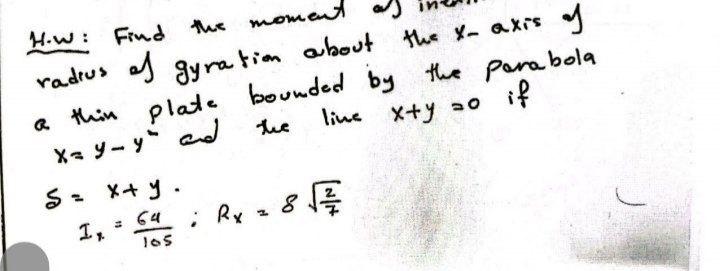 H.W: Find the moment of
radius of gyration about the x-axis of
a thin plate bounded by the parabola
x = y - y² and the line x+y = 0 if
δ = x + y.
Iₓ = 64/105 ; Rx = 8 √(2/7)